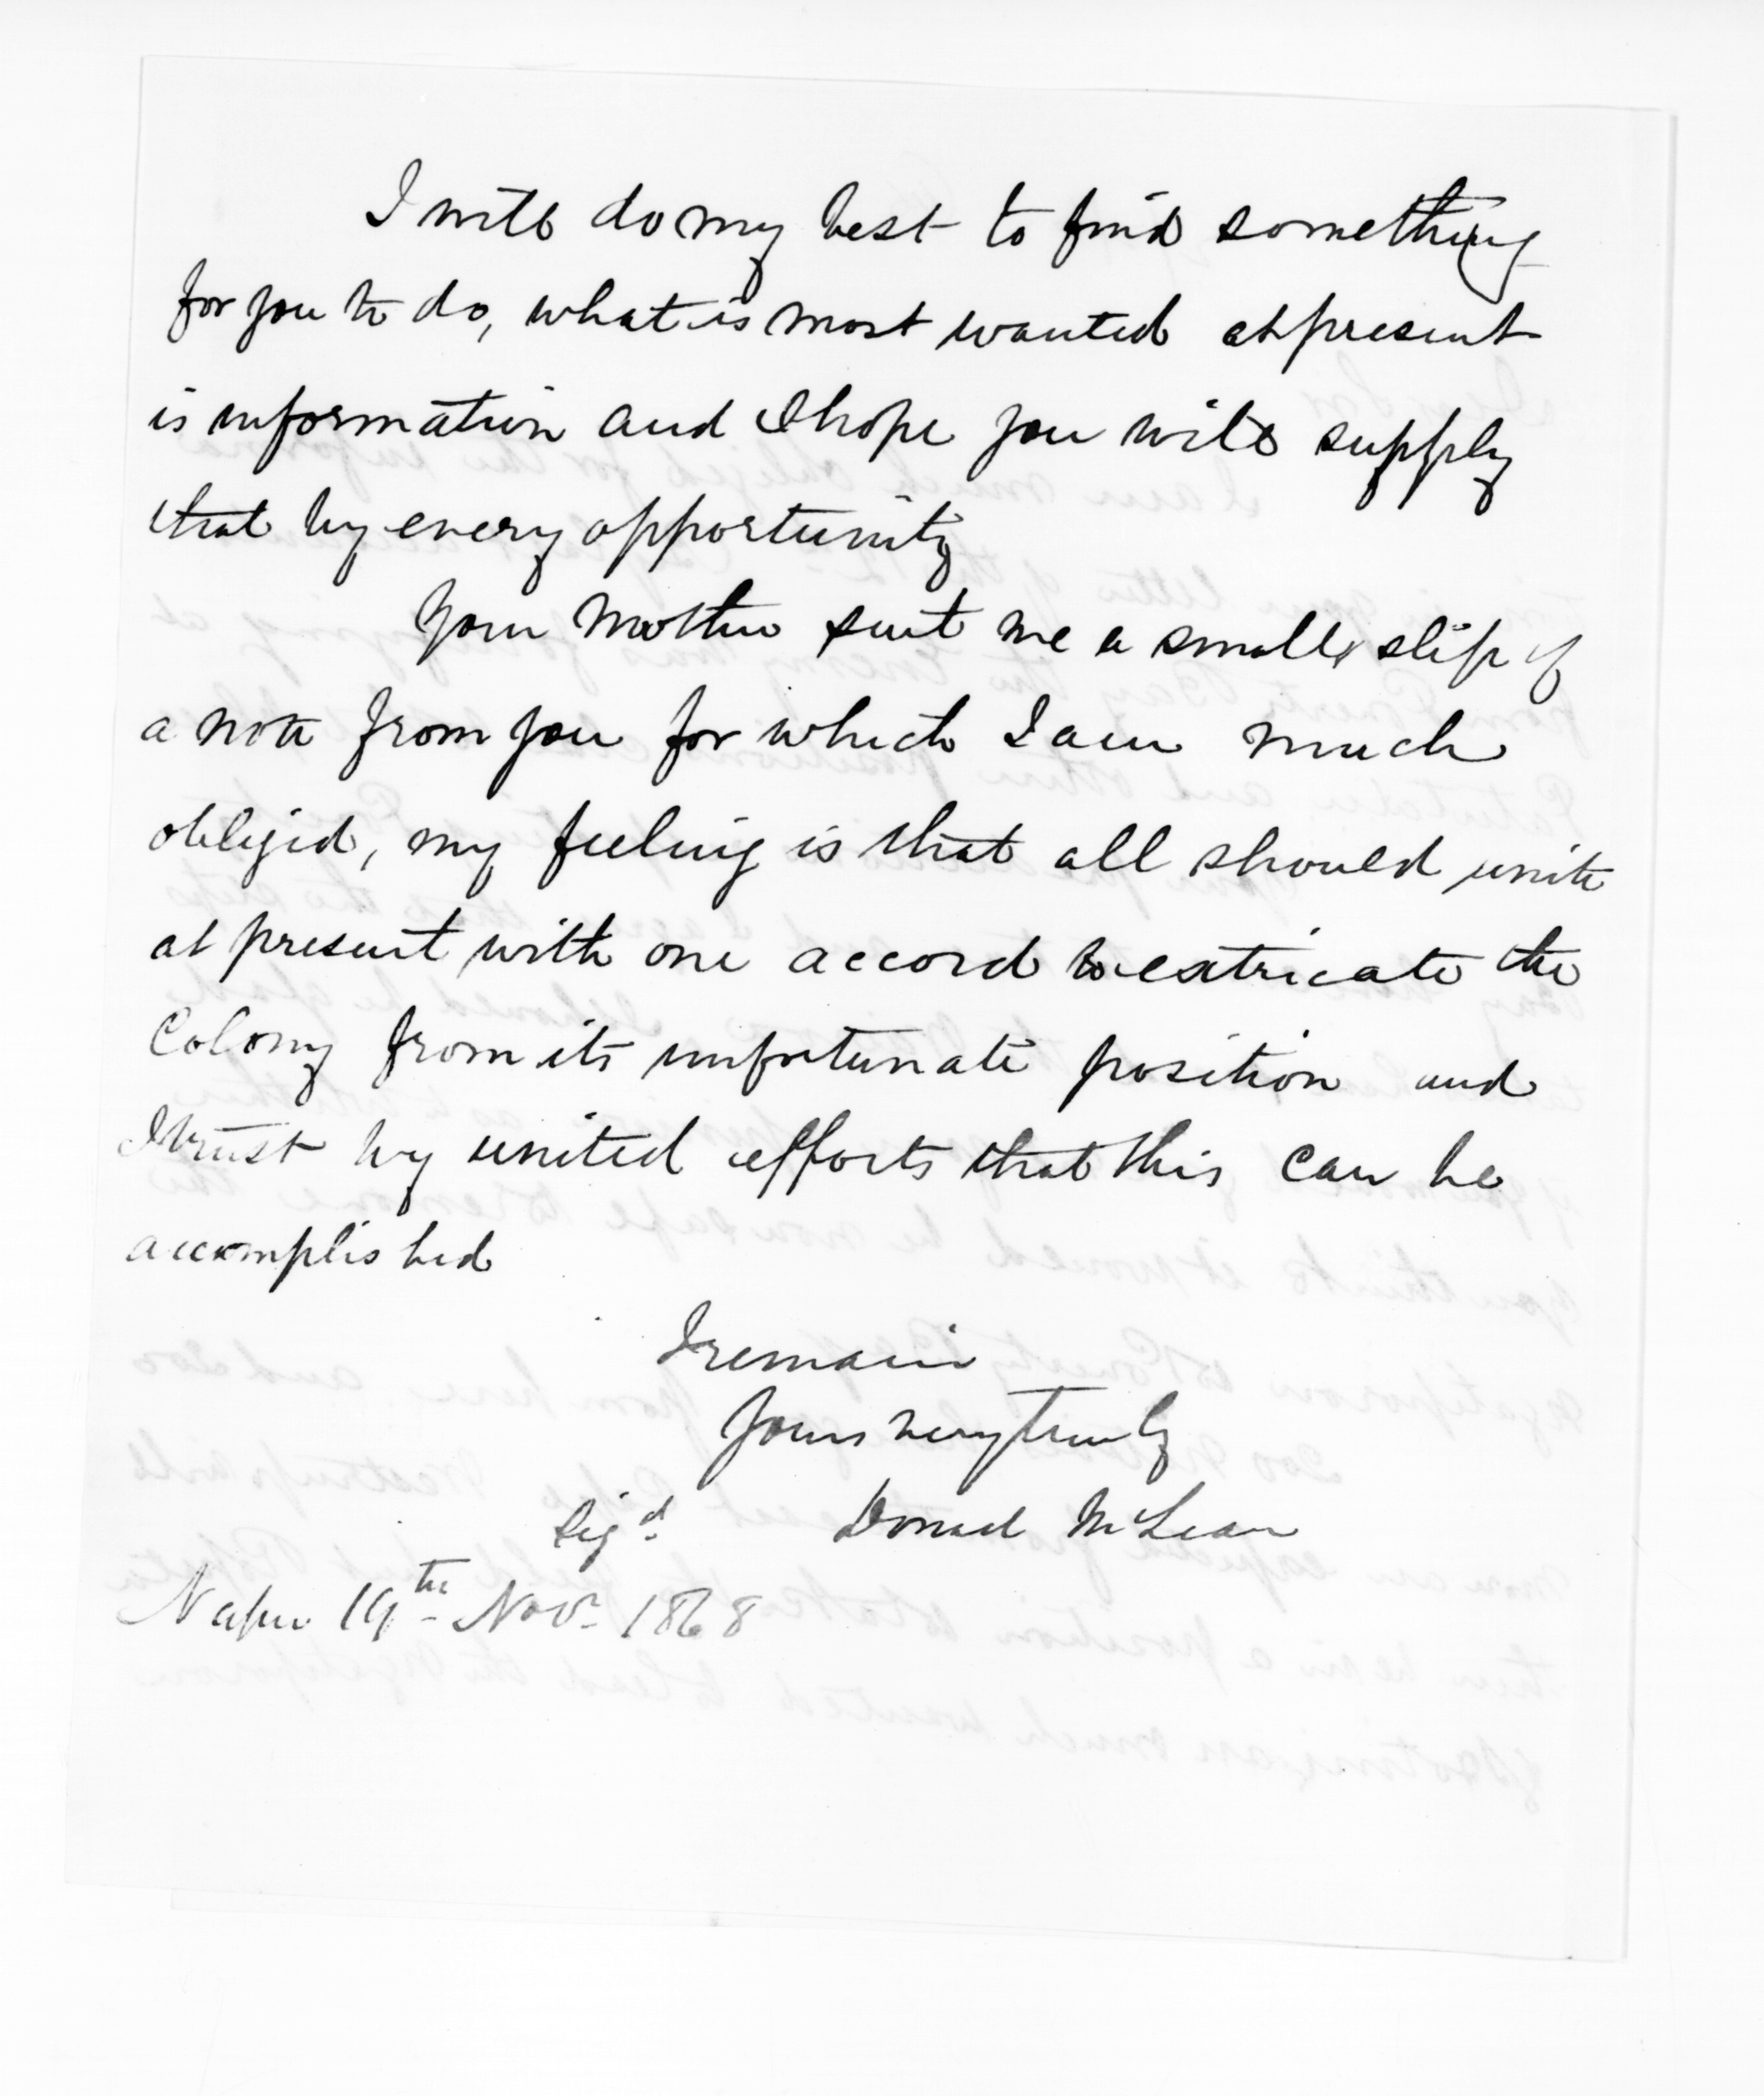 I will do my best to find something
for you to do, what is most wanted at present
is information and I hope you will supply
that by every opportunity
Your Mother sent me a small slip of
a note from you for which I am much
obliged, my feeling is that all should unite
at present with one accord to extricate the
Colony from its unfortunate position and
I trust by united efforts that this can be
accomplished
I remain
Yours very truly
Sigd. Donald McLean
Napier 19th Novr 1868